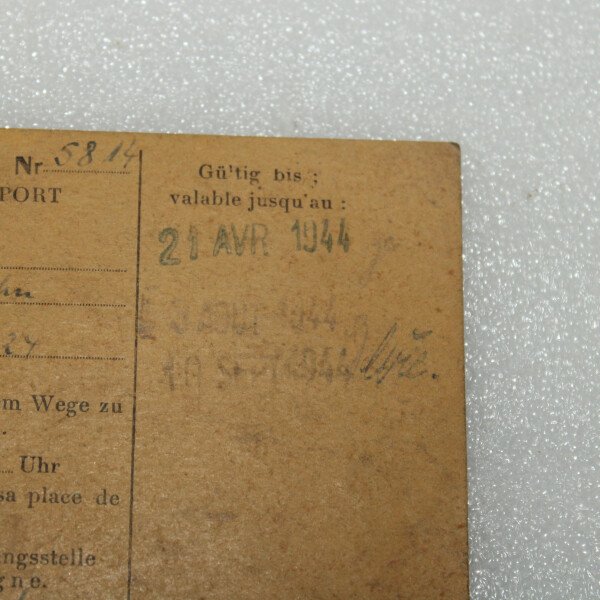 Nr 5814
PORT
24
m Wege zu
Uhr
sa place de
ngsstelle
gne.
Gü'tig bis :
valable jusqu'au :
21 AVR 1944
1944
1944